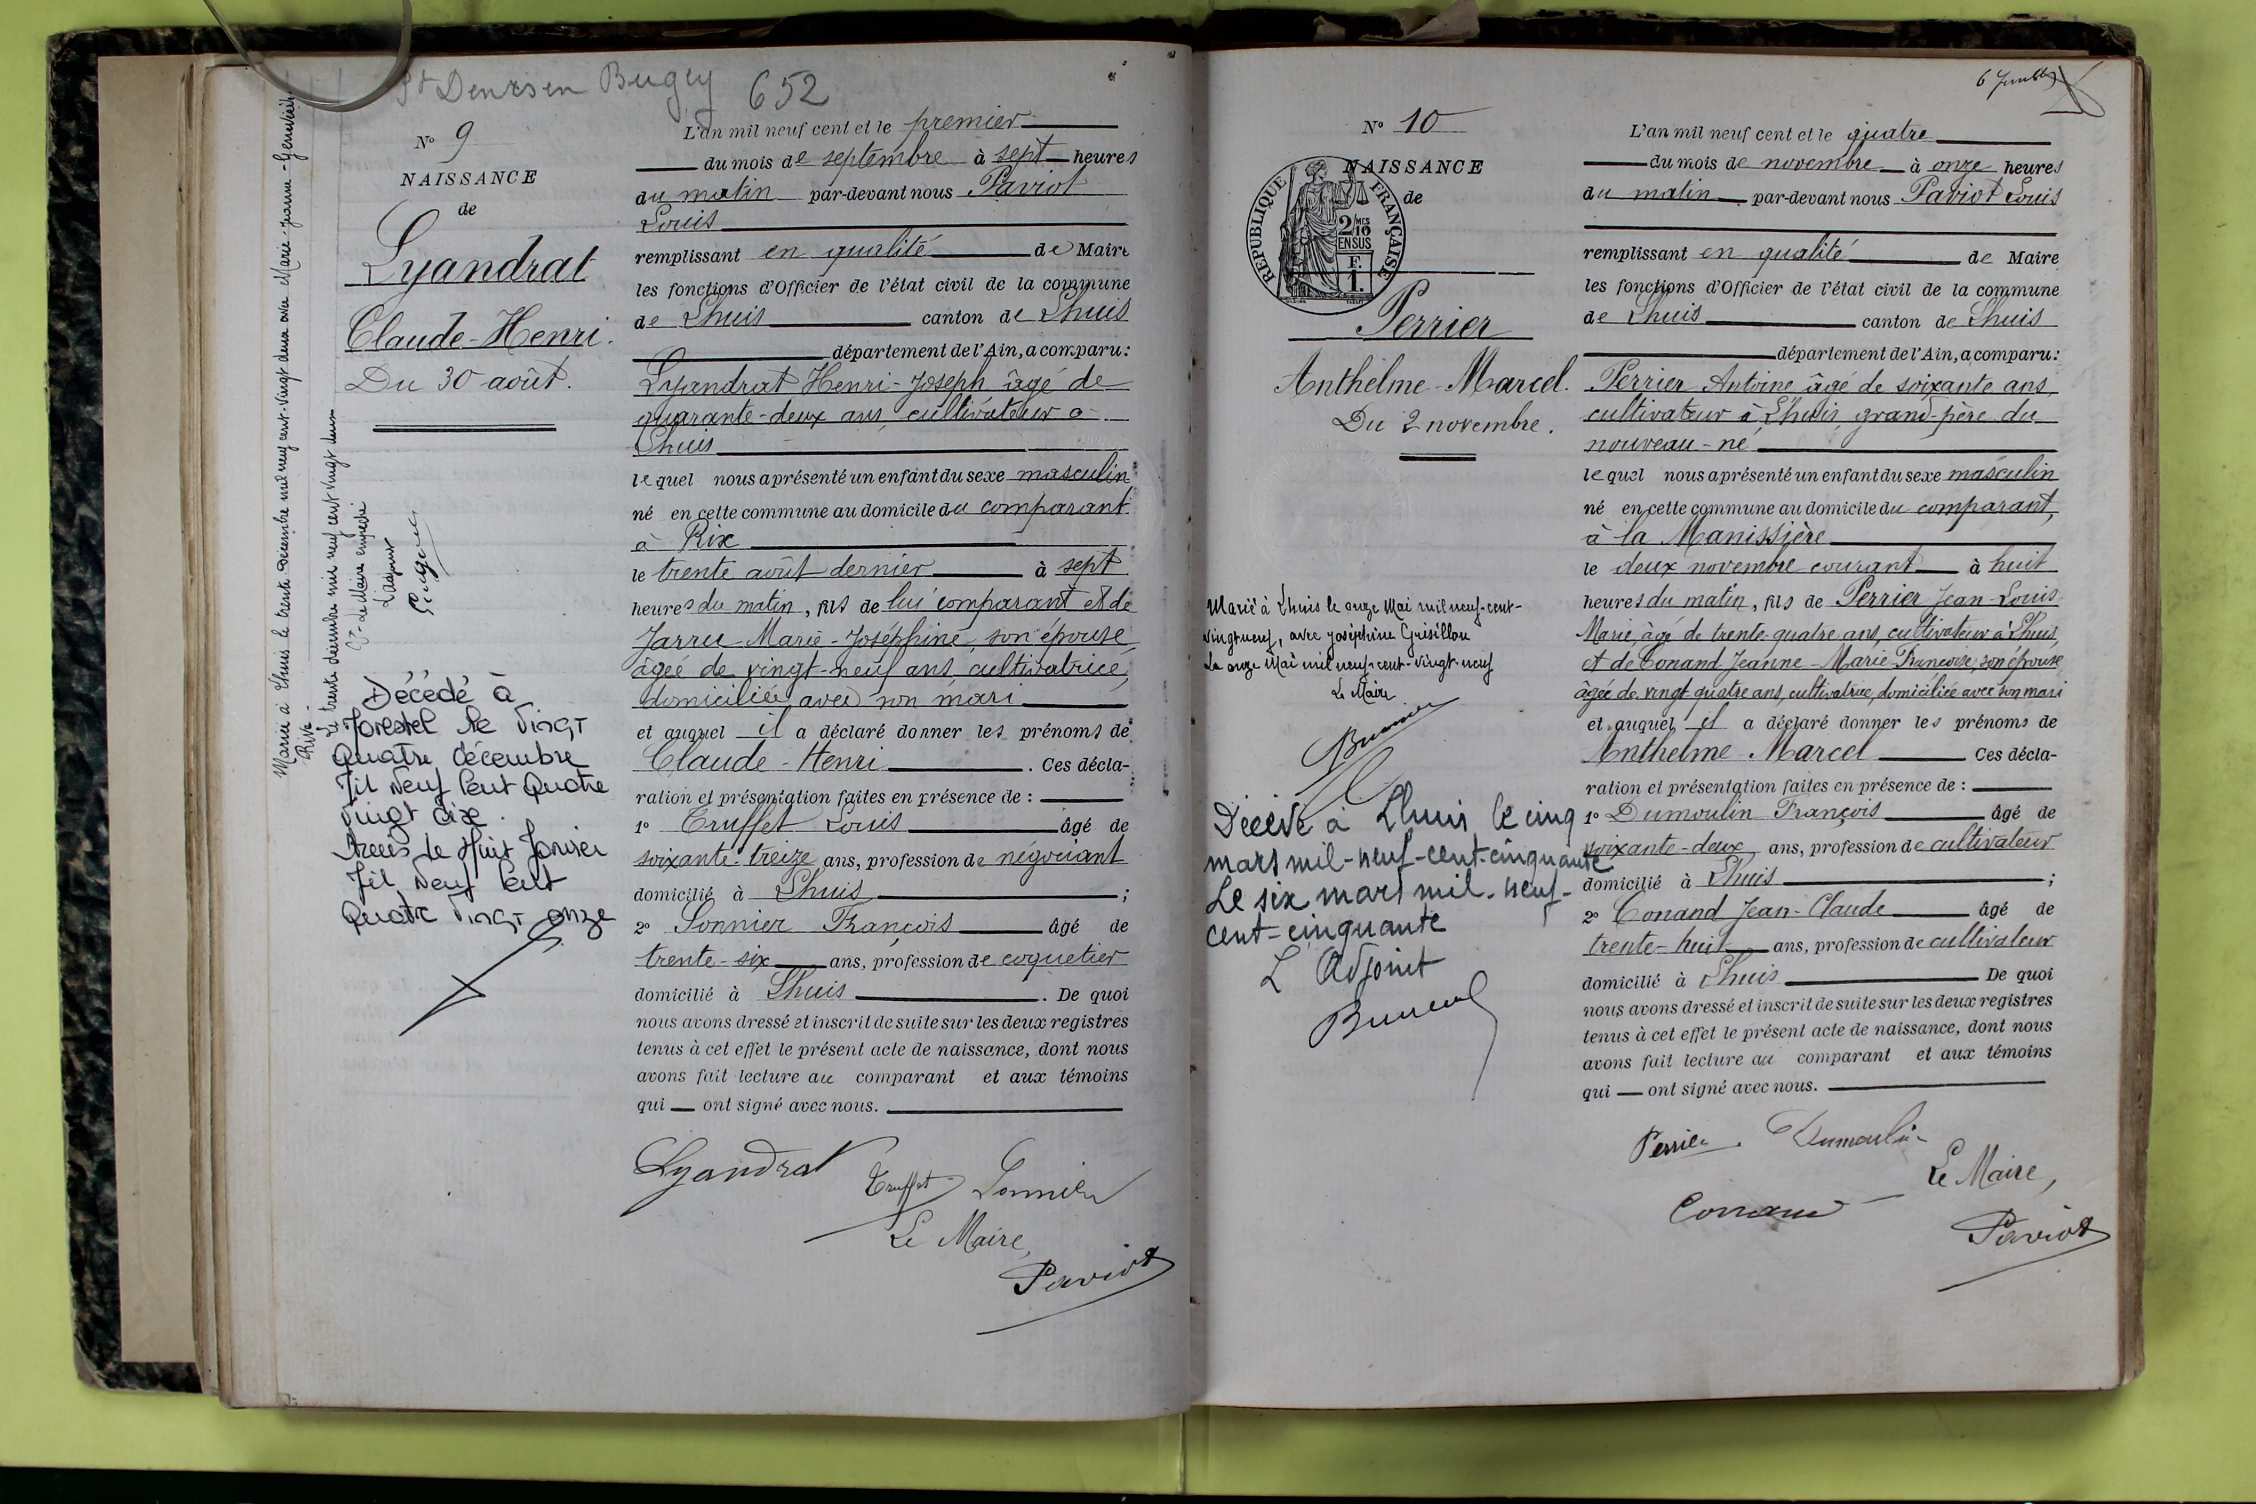 St Denis en Bugey 652
N° 9
NAISSANCE
de
Lyandrat
Claude-Henri.
Du 30 août.
Marié à Lhuis le trente décembre mil neuf cent-vingt deux avec Marie-Jeanne-Geneviève
Rive.
Le trente décembre mil neuf cent vingt deux
Pr le Maire empêché
L'adjoint
Décédé à
le Vingt
Quatre décembre
Mil Neuf Cent Quatre
Vingt dix.
le Huit Janvier
Mil Neuf Cent
Quatre Vingt onze
L'an mil neuf cent et le premier
du mois de septembre à sept heures
du matin par-devant nous Paviot
Louis
remplissant en qualité de Maire
les fonctions d'Officier de l'état civil de la commune
de Lhuis canton de Lhuis
département de l'Ain, a comparu:
Lyandrat Henri-Joseph âgé de
quarante-deux ans, cultivateur à
Lhuis
lequel nous a présenté un enfant du sexe masculin
né en cette commune au domicile du comparant
à Rix
le trente août dernier à sept
heures du matin, fils de lui comparant et de
Jarru Marie-Joséphine, son épouse,
âgée de vingt-neuf ans, cultivatrice,
domiciliée avec son mari
et auquel il a déclaré donner les prénoms de
Claude-Henri. Ces décla-
ration et présentation faites en présence de :
1° Truffet Louis âgé de
soixante-treize ans, profession de négociant
domicilié à Lhuis ;
2° Sonnier François âgé de
trente-six ans, profession de coquetier
domicilié à Lhuis. De quoi
nous avons dressé et inscrit de suite sur les deux registres
tenus à cet effet le présent acte de naissance, dont nous
avons fait lecture au comparant et aux témoins
qui ont signé avec nous.
Lyandrat Truffet Sonnier
Le Maire,
Paviot
N° 10
NAISSANCE
de
REPUBLIQUE FRANÇAISE
2/10 MES
EN SUS
F.
1.
Perrier
Anthelme-Marcel.
Du 2 novembre.
Marié à Lhuis le onze Mai mil neuf-cent-
vingt neuf, avec Joséphine Grisillon
Le onze Mai mil neuf-cent-vingt-neuf
Le Maire
Décédé à Lhuis le cinq
mars mil-neuf-cent-cinquante
Le six mars mil-neuf-
cent-cinquante
L'Adjoint
6 feuillet
L'an mil neuf cent et le quatre
du mois de novembre à onze heures
du matin par-devant nous Paviot Louis
remplissant en qualité de Maire
les fonctions d'Officier de l'état civil de la commune
de Lhuis canton de Lhuis
département de l'Ain, a comparu:
Perrier Antoine âgé de soixante ans,
cultivateur à Lhuis, grand-père du
nouveau-né
lequel nous a présenté un enfant du sexe masculin
né en cette commune au domicile du comparant,
à la Manissière
le deux novembre courant à huit
heures du matin, fils de Perrier Jean-Louis
Marie, âgé de trente-quatre ans, cultivateur à Lhuis,
et de Conand Jeanne-Marie Françoise, son épouse
âgée de vingt quatre ans, cultivatrice, domiciliée avec son mari
et auquel il a déclaré donner les prénoms de
Anthelme Marcel Ces décla-
ration et présentation faites en présence de :
1° Dumoulin François âgé de
soixante-deux ans, profession de cultivateur
domicilié à Lhuis ;
2° Conand Jean-Claude âgé de
trente-huit ans, profession de cultivateur
domicilié à Lhuis De quoi
nous avons dressé et inscrit de suite sur les deux registres
tenus à cet effet le présent acte de naissance, dont nous
avons fait lecture au comparant et aux témoins
qui ont signé avec nous.
Perrier Dumoulin
Le Maire,
Conand
Paviot